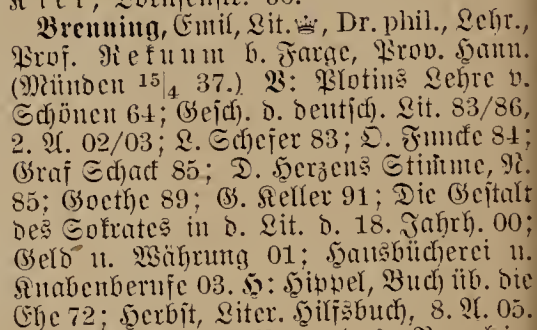 Brenning, Emil, Lit.♕, Dr. phil., Lehr.,
Prof. Rekum b. Farge, Prov. Hann.
(Münden 15/4 37.) V: Plotins Lehre v.
Schönen 64; Gesch. d. deutsch. Lit. 83/86,
2. A. 02/03; L. Schefer 83; O. Funcke 84;
Graf Schack 85; D. Herzens Stimme, N.
85; Goethe 89; G. Keller 91; Die Gestalt
des Sokrates in d. Lit. d. 18. Jahrh. 00;
Geld u. Währung 01; Hausbücherei u.
Knabenberufe 03. H: Hippel, Buch üb. die
Ehe 72; Herbst, Liter. Hilfsbuch, 8. A. 05.